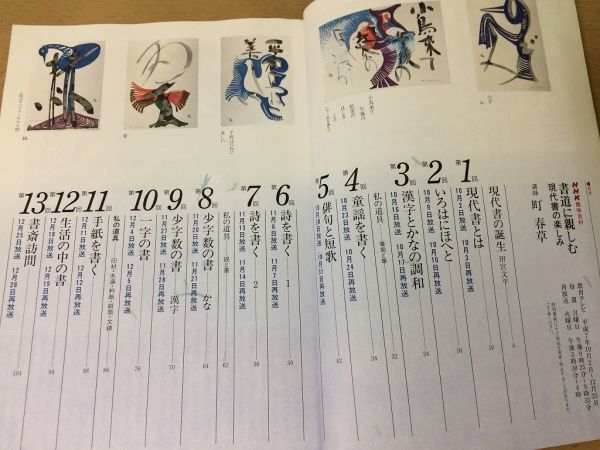 NHK趣味百科
書道に親しむ
現代書の楽しみ
講師 町 春草
教育テレビ 平成1年10月2日〜12月25日
毎週 月曜日 午後9時25分〜9時55分
再放送 火曜日 午後3時20分〜4時
現代書の誕生 田宮文平 4
第1回 現代書とは 10
10月2日放送 10月3日再放送
第2回 いろはにほへと 16
10月9日放送 10月10日再放送
第3回 漢字とかなの調和 24
10月16日放送 10月17日再放送
私の道具 32
第4回 童謡を書く 34
10月23日放送 10月24日再放送
第5回 俳句と短歌 42
10月30日放送 10月31日再放送
第6回 詩を書く 1 50
11月6日放送 11月7日再放送
第7回 詩を書く 2 56
11月13日放送 11月14日再放送
私の道具 62
第8回 少字数の書 かな 64
11月20日放送 11月21日再放送
第9回 少字数の書 漢字 70
11月27日放送 11月28日再放送
第10回 一字の書 76
12月4日放送 12月5日再放送
私の道具 86
第11回 手紙を書く 88
12月11日放送 12月12日再放送
第12回 生活の中の書 94
12月18日放送 12月19日再放送
第13回 書斎訪問 104
12月25日放送 12月26日再放送